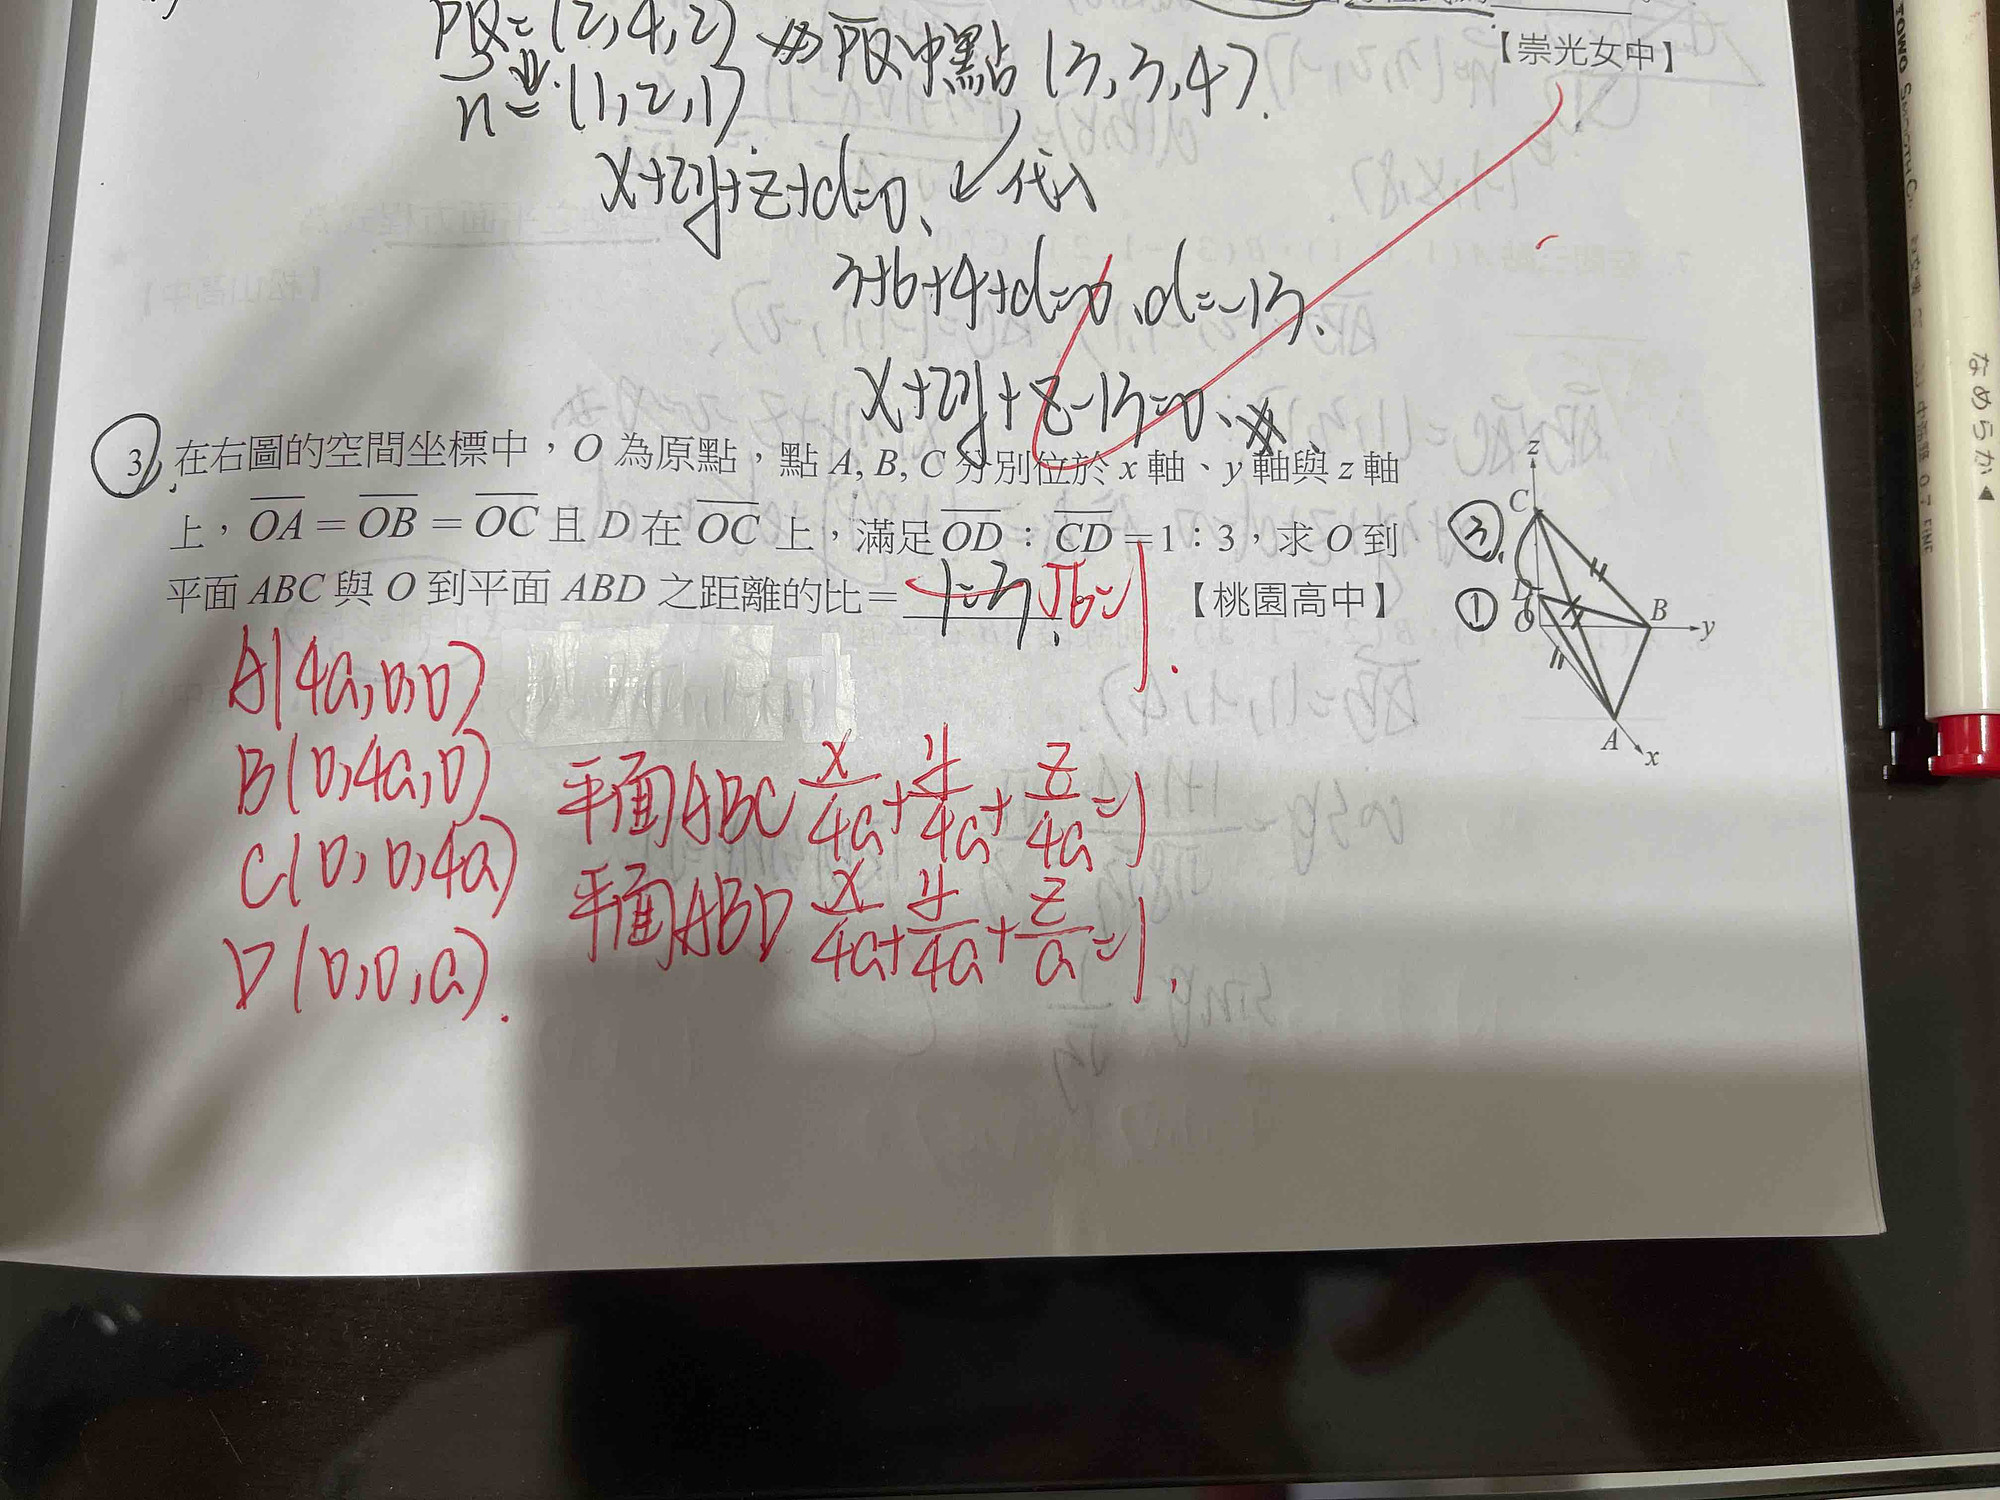 PQ = (2, 4, 2) PQ中點 (3, 3, 4)
n = (1, 2, 1)
【崇光女中】
x+2y+z+d=0、代入
3+6+4+d=0、d=-13、
x+2y+z-13=0、
3. 在右圖的空間坐標中，O 為原點，點 A, B, C 分別位於 x 軸、y 軸與 z 軸
上，OA = OB = OC 且 D 在 OC 上，滿足 OD：CD = 1：3，求 O 到
平面 ABC 與 O 到平面 ABD 之距離的比＝ 1=3 √6=1 【桃園高中】
z
C
③
D
B
①
O
y
A
x
A(4a,0,0)
B(0,4a,0)
C(0,0,4a)
D(0,0,a).
平面ABC x/4a + y/4a + z/4a = 1
平面ABD x/4a + y/4a + z/a = 1.
なめらか◀